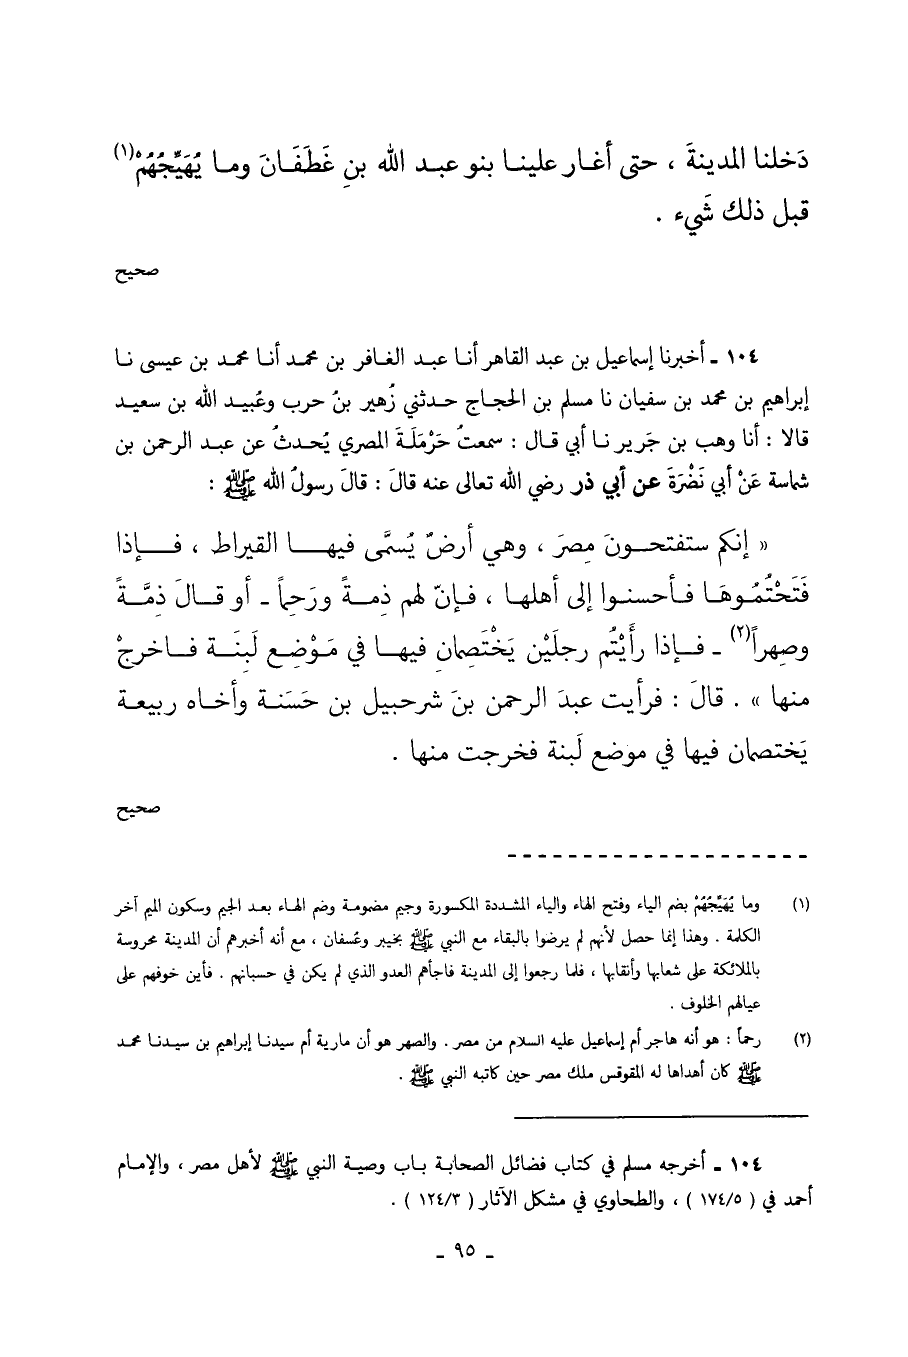 دَخلنا المدينةَ ، حتى أغار علينا بنو عبد الله بنِ غَطَفَانَ وما يُهَيِّجُهُمْ(١)
قبل ذلك شَيء .
صحيح
١٠٤ ـ أخبرنا إسماعيل بن عبد القاهر أنا عبد الغافر بن محمد أنا محمد بن عيسى نا
إبراهيم بن محمد بن سفيان نا مسلم بن الحجاج حدثني زُهير بنُ حرب وعُبيد الله بن سعيد
قالا : أنا وهب بن جَرير نا أبي قال : سمعتُ حَرْمَلَةَ المصري يُحدثُ عن عبد الرحمن بن
شماسة عَنْ أبي نَضْرَةَ عن أبي ذر رضي الله تعالى عنه قالَ : قالَ رسولُ الله ﷺ :
« إنكم ستفتحونَ مِصرَ ، وهي أرضٌ يُسمَّى فيها القيراط ، فإذا
فَتَحْتُمُوهَا فأحسنوا إلى أهلها ، فإنّ لهم ذِمةً ورَحِماً ـ أو قالَ ذِمَّةً
وصِهراً(٢) ـ فإذا رأَيْتُم رجلَيْن يَخْتَصِمانِ فيها في مَوْضِعِ لَبِنَة فاخرجْ
منها » . قالَ : فرأيت عبدَ الرحمن بنَ شرحبيل بن حَسَنة وأخاه ربيعة
يَختصمان فيها في موضع لَبنة فخرجت منها .
صحيح
(١) وما يُهَيِّجُهُمْ بضم الياء وفتح الهاء والياء المشددة المكسورة وجيم مضمومة وضم الهاء بعد الجيم وسكون الميم آخر
الكلمة . وهذا إنما حصل لأنهم لم يرضوا بالبقاء مع النبي ﷺ بخيبر وعُسفان ، مع أنه أخبرهم أن المدينة محروسة
بالملائكة على شعابها وأنقابها ، فلما رجعوا إلى المدينة فاجأهم العدو الذي لم يكن في حسبانهم . فأين خوفهم على
عيالهم الخلوف .
(٢) رحماً : هو أنه هاجر أم إسماعيل عليه السلام من مصر . والصهر هو أن مارية أم سيدنا إبراهيم بن سيدنا محمد
ﷺ كان أهداها له المقوقس ملك مصر حين كاتبه النبي ﷺ .
١٠٤ ـ أخرجه مسلم في كتاب فضائل الصحابة باب وصية النبي ﷺ لأهل مصر ، والإمام
أحمد في ( ١٧٤/٥ ) ، والطحاوي في مشكل الآثار ( ١٢٤/٣ ) .
ـ ٩٥ ـ